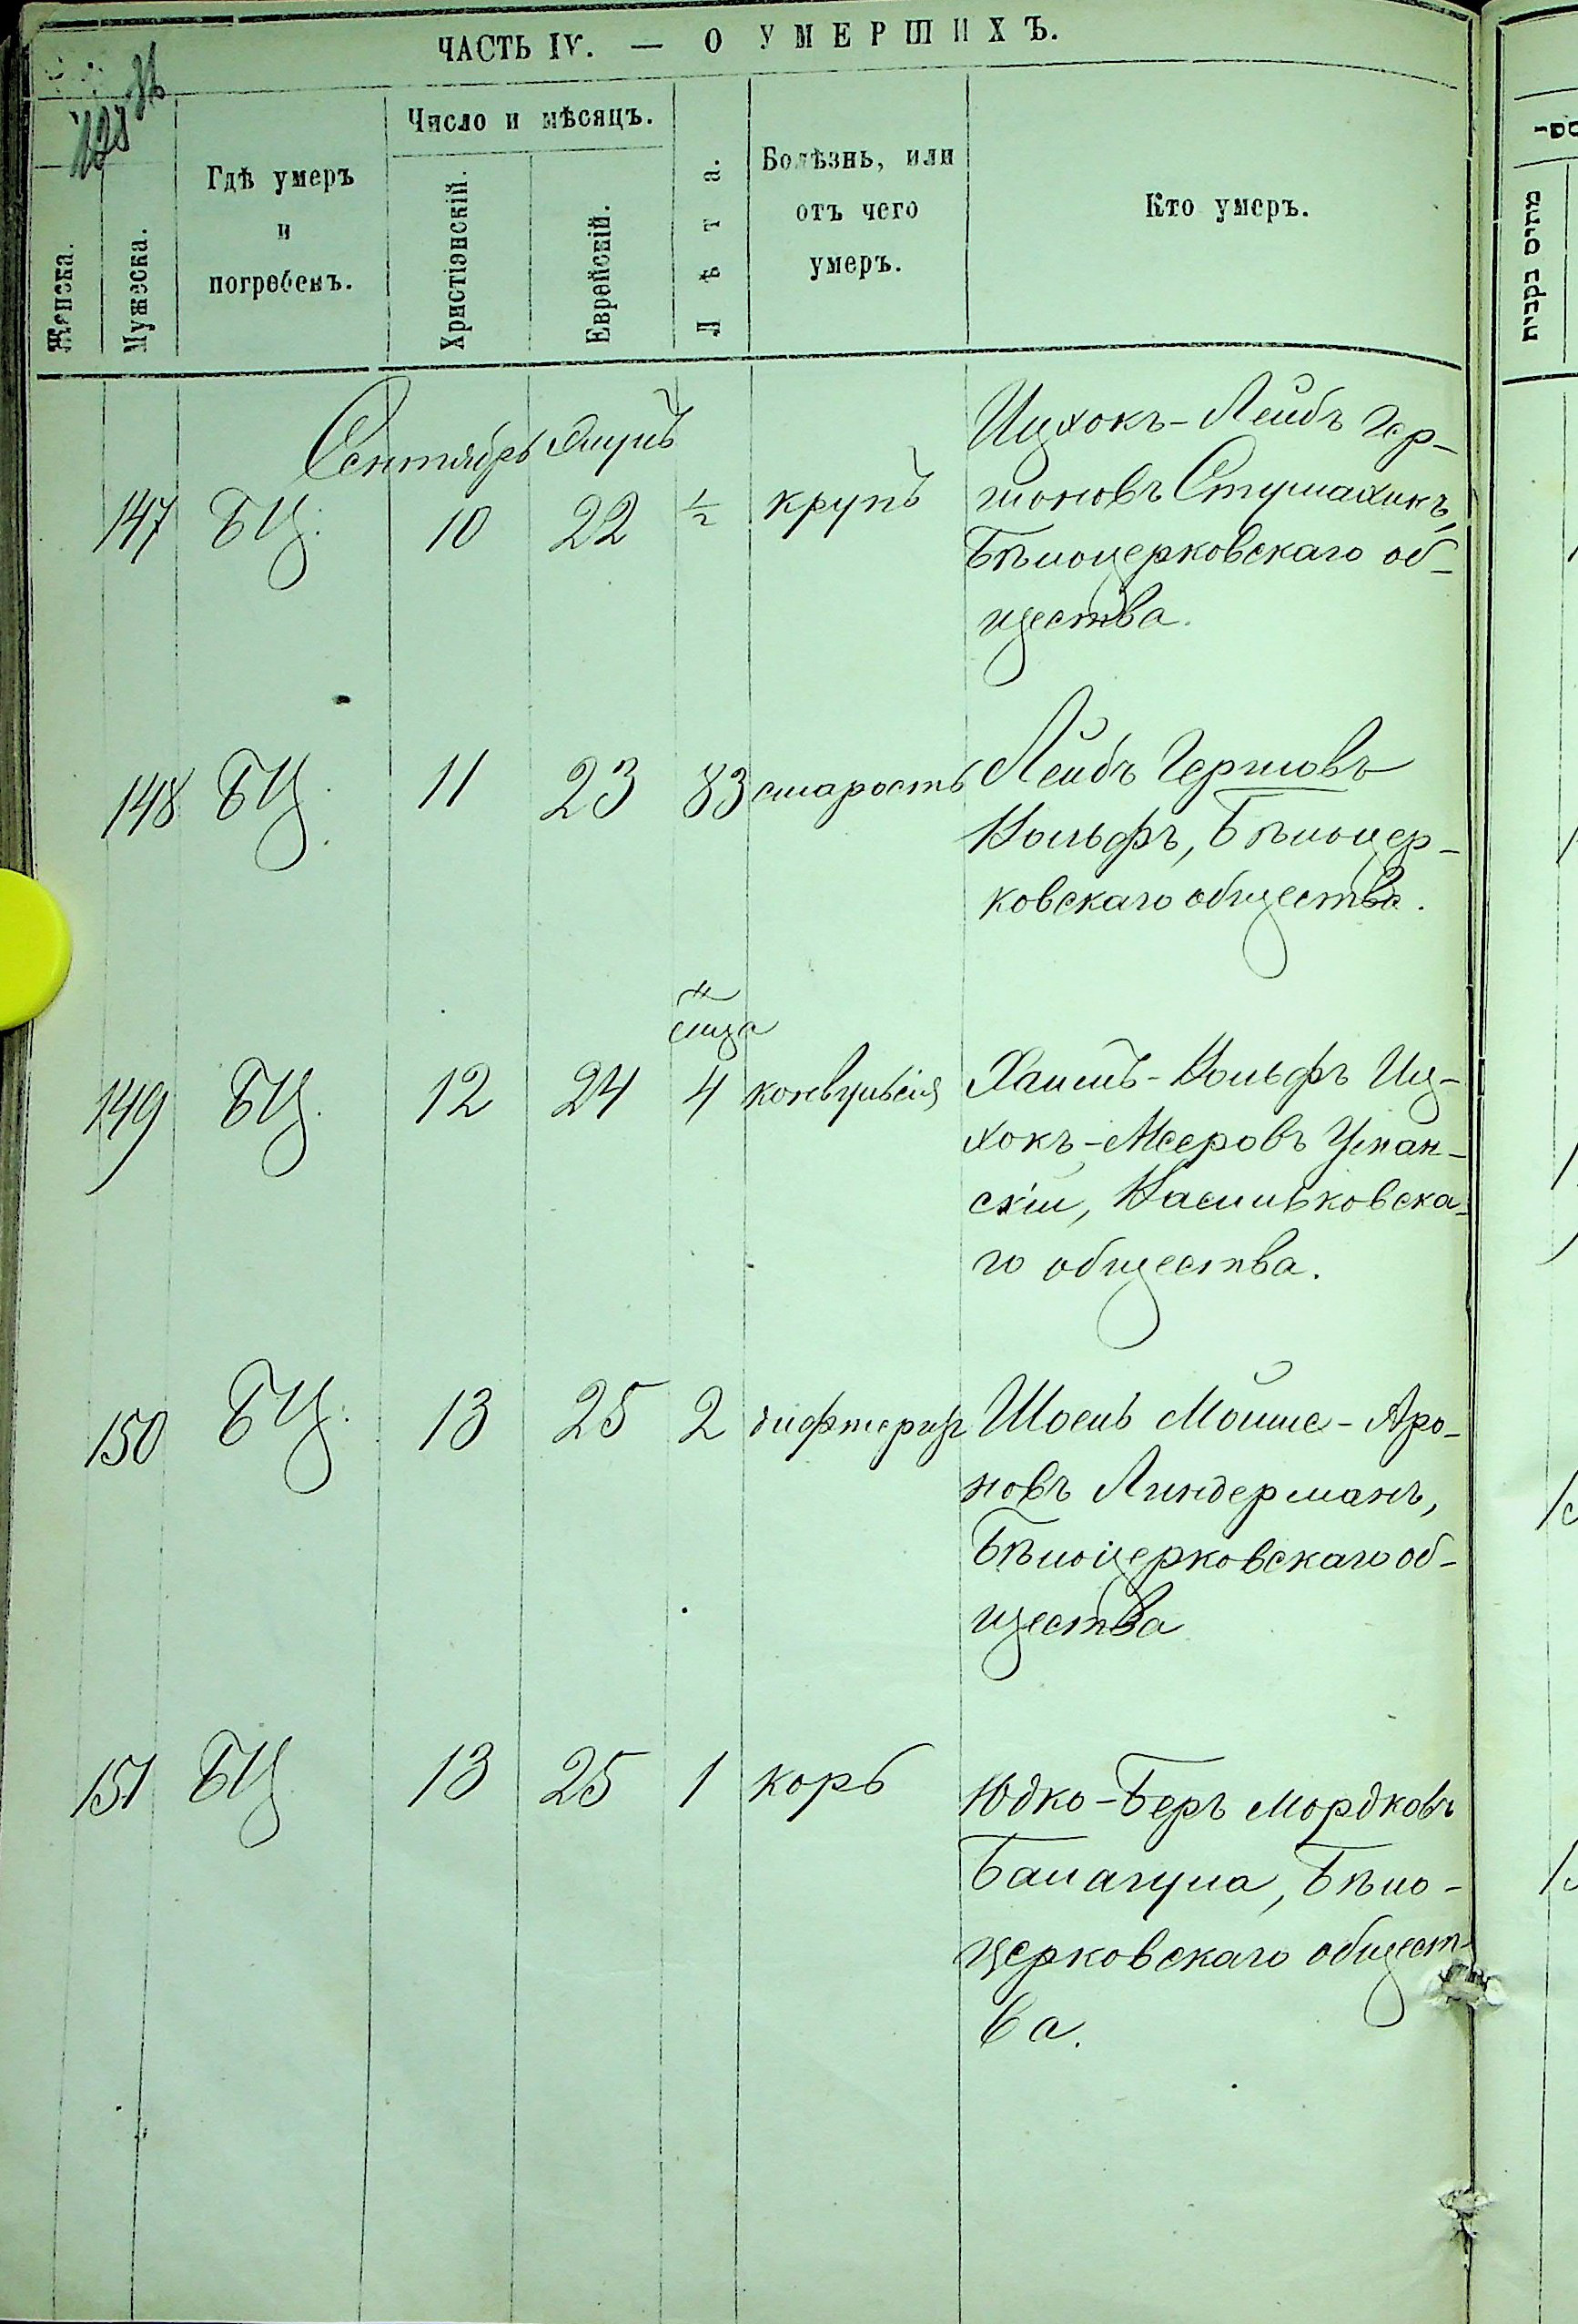 ЧАСТЬ IV. — О УМЕРШИХЪ.
Женска.
Мужеска.
Гдѣ умеръ
и
погребенъ.
Число и мѣсяцъ.
Христіэнскій.
Еврейскій.
Лѣта.
Болѣзнь, или
отъ чего
умеръ.
Кто умеръ.
Сентябрь Элулъ
147 БЦ. 10 22 ½ крупъ
Ицхокъ-Лейбъ Гер-
шоновъ
Бѣлоцерковскаго об-
щества.
148 БЦ. 11 23 83 старость
Лейбъ Гершовъ
Вольфъ, Бѣлоцер-
ковскаго общества.
149 БЦ. 12 24 4 конвульсія
Хаимъ-Вольфъ Иц-
хокъ-Мееровъ Уман-
скій, Васильковска-
го общества.
150 БЦ. 13 25 2 дифтеритъ
Шоель Мойше-Аро-
новъ Линдерманъ,
Бѣлоцерковскаго об-
щества
151 БЦ 13 25 1 корь
Юдко-Беръ Мордковъ
Балагула, Бѣло-
церковскаго общест-
ва.
מתים בקבית